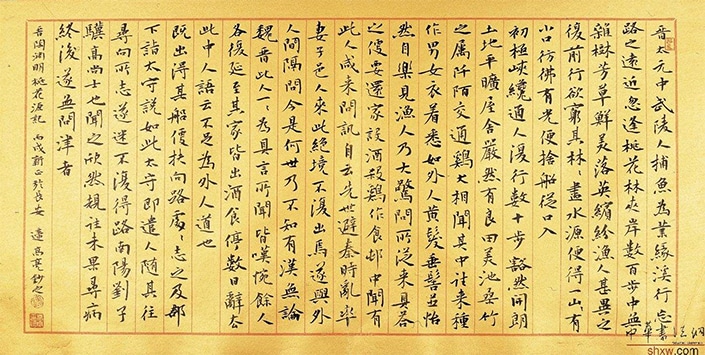 晉太元中武陵人捕魚為業緣溪行忘
路之遠近忽逢桃花林夾岸數百步中無
雜樹芳草鮮美落英繽紛漁人甚異之
復前行欲窮其林〻盡水源便得山有
小口彷彿有光便捨船從口入
初極峽纔通人復行數十步豁然開朗
土地平曠屋舍嚴然有良田美池桑竹
之屬阡陌交通鷄犬相聞其中往来種
作男女衣着悉如外人黄髮垂髫並怡
然自樂見漁人乃大驚問所從来具答
之便要還家設酒殺鷄作食邨中聞有
此人咸来問訊自云先世避秦時亂率
妻子邑人來此絕境不復出焉遂與外
人間隔問今是何世乃不知有漢無論
魏晉此人一〻為具言所聞皆嘆惋餘人
各復延至其家皆出酒食停數日辭去
此中人語云不足為外人道也
既出得其船便扶向路處〻志之及郡
下詣太守說如此太守即遣人隨其往
尋向所志遂迷不復得路南陽劉子
驥高尚士也聞之欣然規往未果尋病
終後遂無問津者
晉陶淵明桃花源記 丙戌新正於長安 高亮鈔之
shxw.com